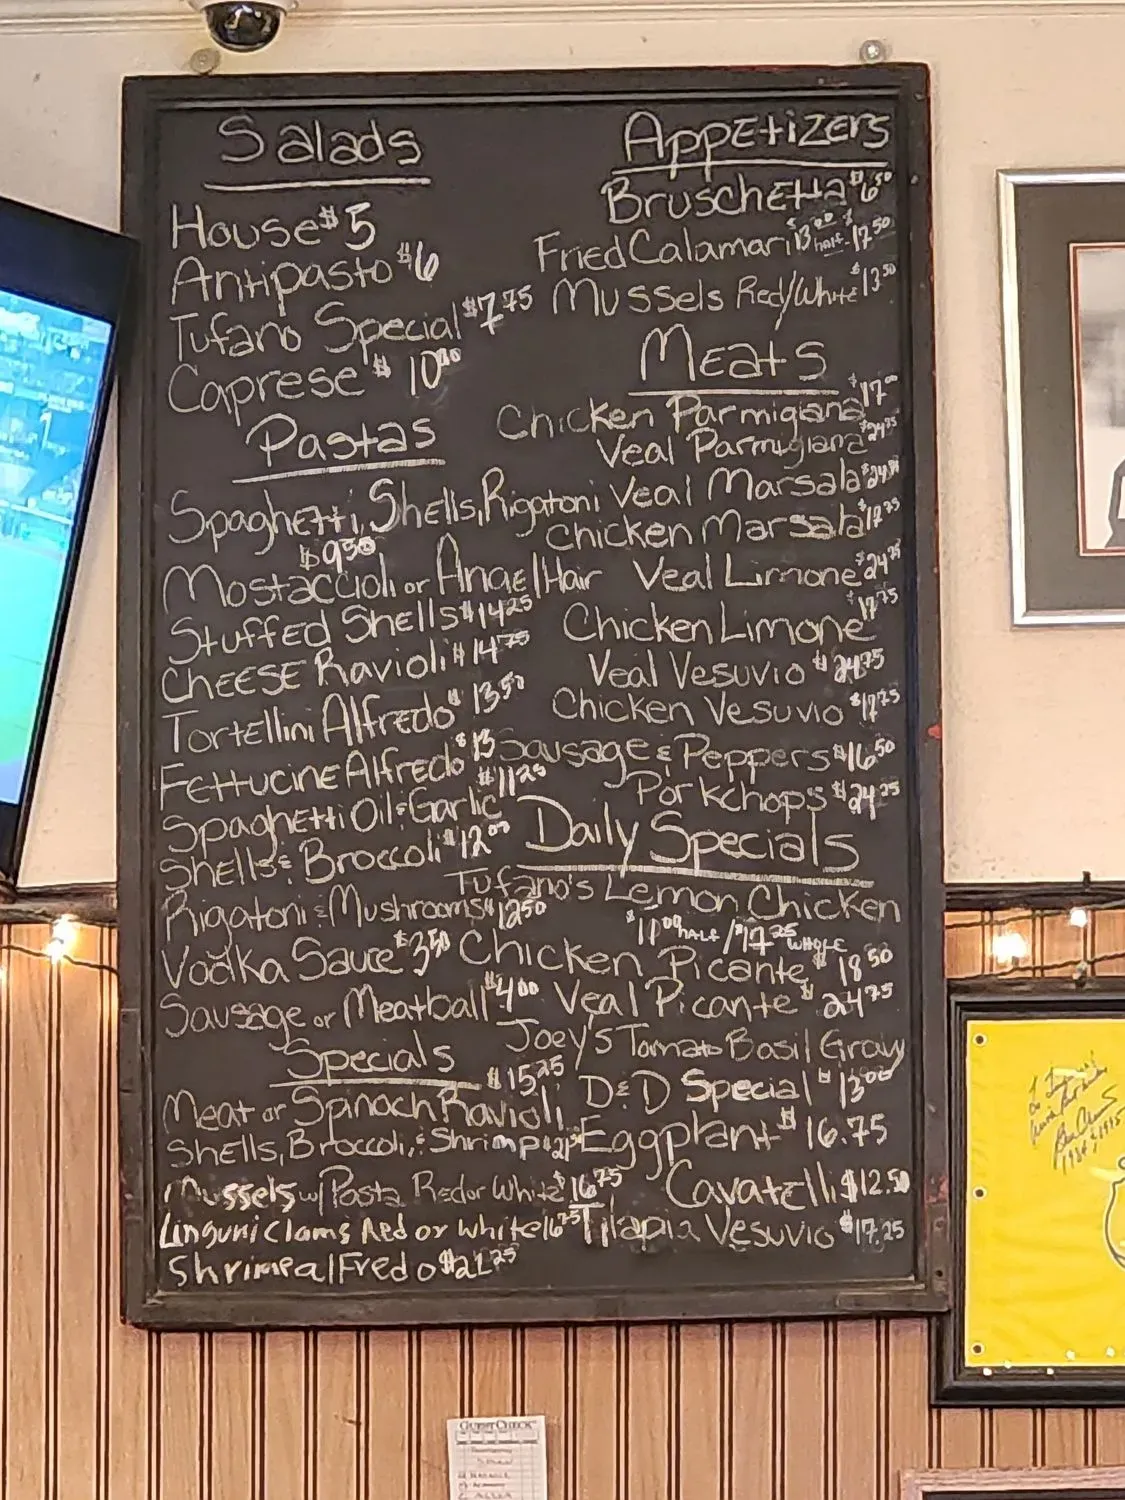 Salads
House $5
Antipasto $6
Tufano Special $7.75
Caprese $10.00
Pastas
Spaghetti, Shells, Rigatoni
$9.50
Mostaccioli or Angel Hair
Stuffed Shells $14.25
Cheese Ravioli $14.75
Tortellini Alfredo $13.50
Fettucine Alfredo $13
$11.25
Spaghetti Oil & Garlic
Shells & Broccoli $12.00
Rigatoni & Mushrooms $12.50
Vodka Sauce $3.50
Sausage or Meatball $4.00
Specials
$15.25
Meat or Spinach Ravioli
Shells, Broccoli, & Shrimp
Mussels w/Pasta Red or White $16.75
Linguni Clams Red or white 16.75
Shrimp alFredo $21.25
Appetizers
Bruschetta $6.50
Fried Calamari $13.00 half - $17.50
Mussels Red/White $13.50
Meats
Chicken Parmigiana $17.00
Veal Parmigiana $24.75
Veal Marsala
Chicken Marsala $17.75
Veal Limone $24.75
Chicken Limone $17.75
Veal Vesuvio $24.75
Chicken Vesuvio $17.75
Sausage & Peppers $16.50
Porkchops $24.25
Daily Specials
Tufano's Lemon Chicken
$11.00 HALF / $17.25 WHOLE
Chicken Picante $18.50
Veal Picante $24.75
Joey's Tomato Basil Gravy
D&D Special $13.00
Eggplant $16.75
Cavatelli $12.50
Tilapia Vesuvio $17.25
Guest Check